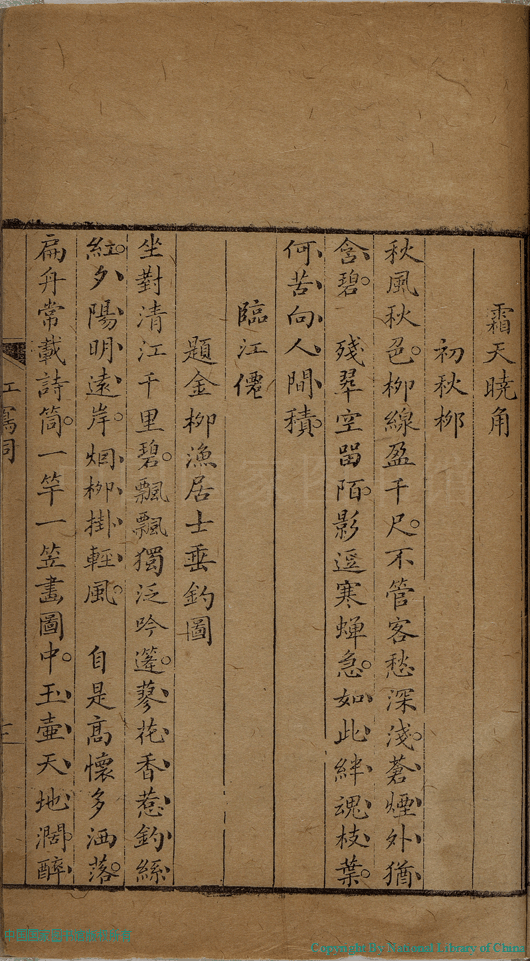 霜天曉角
初秋柳
秋風秋色。柳線盈千尺。不管客愁深淺。蒼煙外猶
含碧。　殘翠空留陌。影逗寒蟬急。如此絆魂枝葉。
何苦向人間積。
臨江僊
題金柳漁居士垂釣圖
坐對清江千里碧。飄飄獨泛吟篷。蓼花香惹釣絲
紅。夕陽明遠岸。烟柳掛輕風。　自是高懷多洒落。
扁舟常載詩筒。一竿一笠畫圖中。玉壺天地濶。醉
Copyright By National Library of China